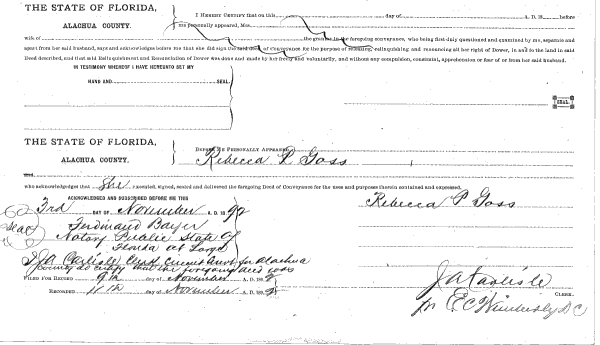 THE STATE OF FLORIDA,
ALACHUA COUNTY.
I HEREBY CERTIFY that on this day of A.D. 18 before
me personally appeared, Mrs.
wife of the grantor in the foregoing conveyance, who being first duly questioned and examined by me, separate and
apart from her said husband, says and acknowledges before me that she did sign the said deed of conveyance for the purpose of releasing, relinquishing and renouncing all her right of Dower, in and to the land in said
Deed described, and that said Relinquishment and Renunciation of Dower was done and made by her freely and voluntarily, and without any compulsion, constraint, apprehension or fear of or from her said husband.
IN TESTIMONY WHEREOF I HAVE HERETO SET MY
HAND AND SEAL.
SEAL.
THE STATE OF FLORIDA,
ALACHUA COUNTY.
BEFORE ME PERSONALLY APPEARED
Rebecca P. Goss
and
who acknowledges that She executed, signed, sealed and delivered the foregoing Deed of Conveyance for the uses and purposes therein contained and expressed.
ACKNOWLEDGED AND SUBSCRIBED BEFORE ME THIS
Rebecca P Goss
3rd DAY OF November A. D. 1892
Seal
Ferdinand Bayer
Notary Public State of
Florida at Large
I J A Carlisle Clerk Circuit Court for Alachua
County do certify that the foregoing deed was
FILED FOR RECORD 9th day of November A. D. 189
RECORDED 11th day of November A. D. 189
J A Carlisle
CLERK.
pr E C Wimberly D C